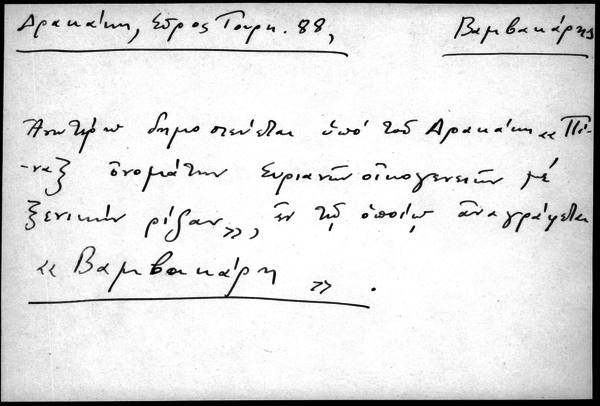 Δρακάκη, Σῦρος Τουρκ. 88,	Βαμβακάρης
Ἀνωτέρω δημοσιεύεται ὑπό τοῦ Δρακάκη «Πί-
-ναξ ὀνομάτων Συριανῶν οἰκογενειῶν μέ
ξενικήν ρίζαν», ἐν τῷ ὁποίῳ ἀναγράφεται
«Βαμβακάρη».